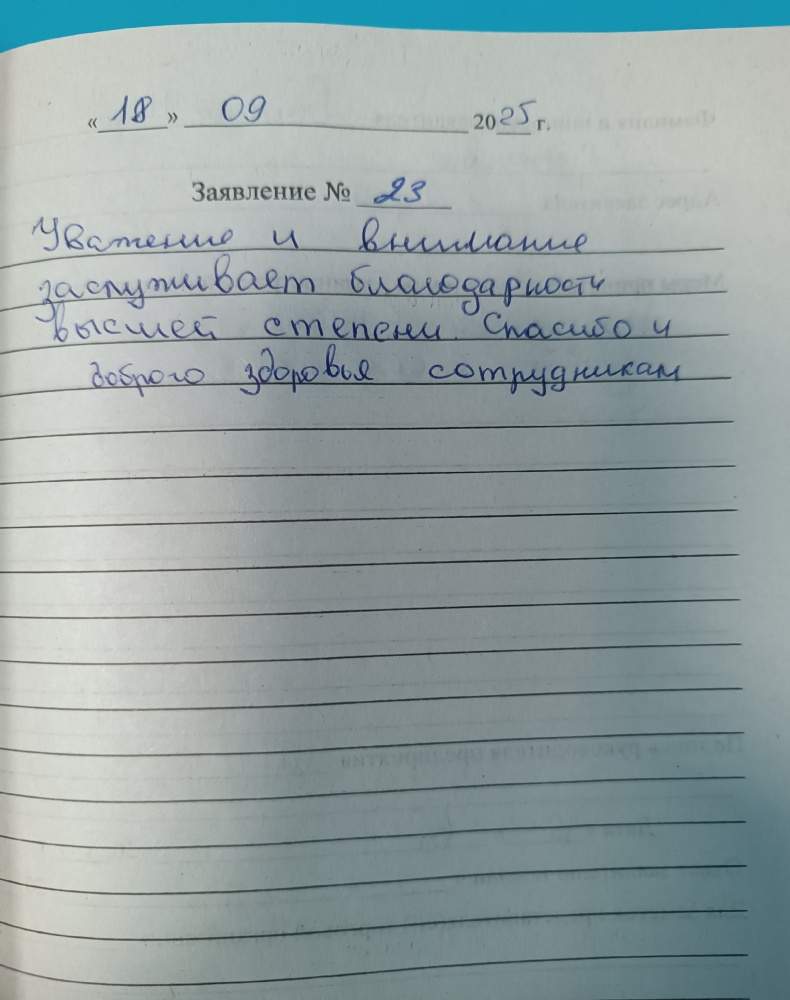 «18» 09 2025 г.
Заявление № 23
Уважение и внимание
заслуживает благодарности
высшей степени. Спасибо и
доброго здоровья сотрудникам